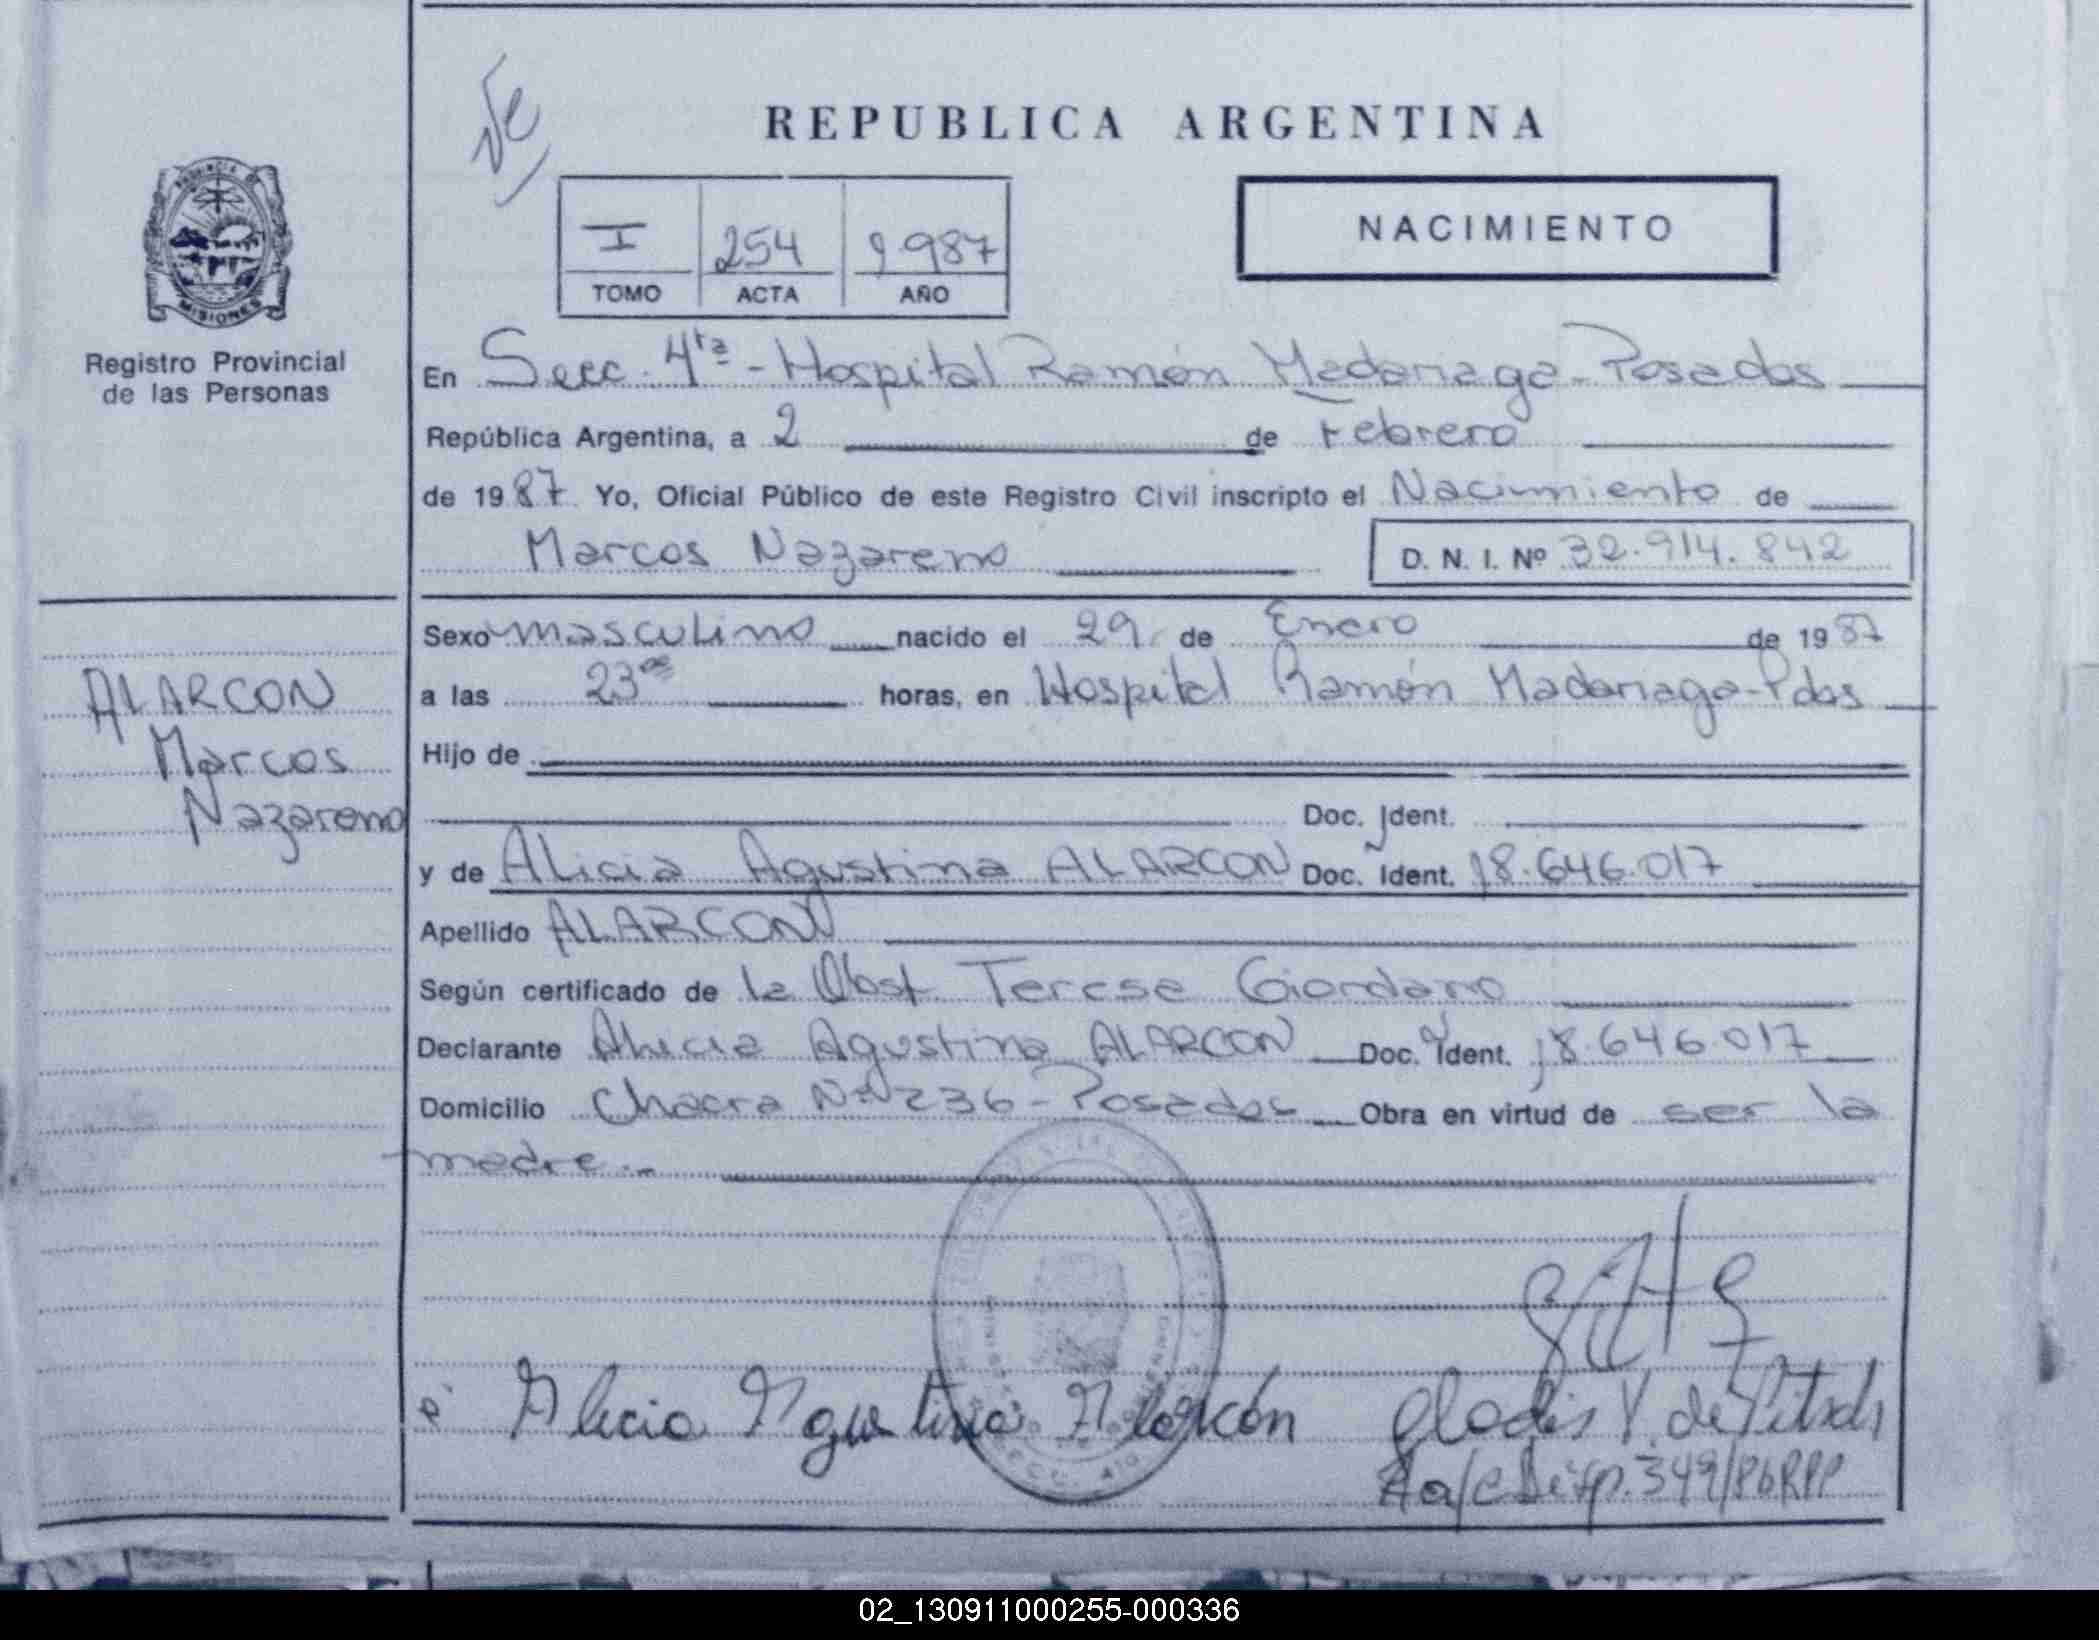 REPUBLICA ARGENTINA
I 254 1987
TOMO ACTA AÑO
NACIMIENTO
PROVINCIA DE
MISIONES
Registro Provincial
de las Personas
ALARCON
Marcos
Nazareno
En Secc. 4ta - Hospital Ramón Madariaga - Posadas
República Argentina, a 2 de Febrero
de 1987 Yo, Oficial Público de este Registro Civil inscripto el Nacimiento de
Marcos Nazareno D. N. I. Nº 32.914.842
Sexo masculino nacido el 29 de Enero de 1987
a las 23 horas, en Hospital Ramón Madariaga-Pdas
Hijo de
Doc. Ident.
y de Alicia Agustina ALARCON Doc. Ident. 18.646.017
Apellido ALARCON
Según certificado de la Obst Teresa Giordano
Declarante Alicia Agustina ALARCON Doc. Ident. 18.646.017
Domicilio Chacra Nº 236 - Posadas Obra en virtud de ser la
madre.-
Alicia Agustina Alarcón Gladis V. de Pitsch
a/c Disp. 349/86 RPP
02_130911000255-000336